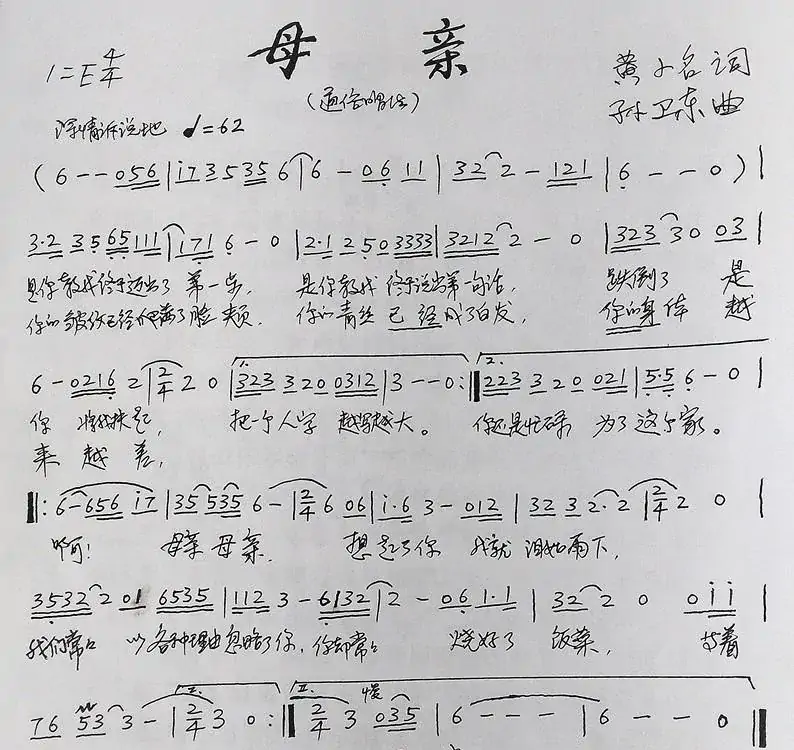 母 亲
(通俗唱法)
1=E 4/4
黄小名 词
孙卫东 曲
深情诉说地 ♩=62
(6 - - 056 | i7 35 35 6 | 6 - 06 11 | 32 2 - 121 | 6 - - 0) |
3·2 35 65 111 | 171 6 - 0 | 2·1 25 0 3333 | 3212 2 - 0 | 323 30 03 |
是你教我终于迈出了 第一步, 是你教我 终于说出第一句话, 跌倒了 是
你的皱纹已经爬满了脸 颊, 你的青丝 已经成了白发, 你的身体 越
6 - 0216 2 | 2/4 2 0 | 1. 323 320 0312 | 3 - - 0 :| 2. 223 320 021 | 5·5 6 - 0 |
你 将我扶起, 把一个人字 越写越大。 你还是忙碌 为了这个家。
来 越 差,
|: 6 - 656 i7 | 35 535 6 - | 2/4 6 06 | i·6 3 - 012 | 32 32·2 | 2/4 2 0 |
啊! 母亲 母亲 想起了你 我就 泪如雨下,
3532 2 01 6535 | 112 3 - 6132 | 2 - 06 1·1 | 32 2 0 0ii |
我们常常 以各种理由忽略了你, 你却常常 烧好了 饭菜, 守着
76 53 3 - | I. 2/4 3 0 :| II. 2/4 3 慢 035 | 6 - - - | 6 - - 0 |